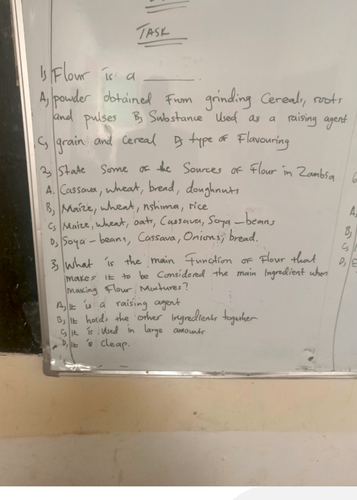 TASK
1) Flour is a ______.
A, powder obtained from grinding Cereals, roots
and pulses B) Substance Used as a raising agent
C, grain and Cereal D, type of Flavouring
2, State Some of the Sources of Flour in Zambia
A. Cassava, wheat, bread, doughnuts
B, Maize, wheat, nshima, rice
C, Maize, wheat, oats, Cassava, Soya-beans
D, Soya-beans, Cassava, Onions, bread.
3, What is the main Function of Flour that
makes it to be Considered the main Ingredient when
making Flour Mixtures?
A, It is a raising agent
B, It holds the other Ingredients together
C, It is Used in large amounts
D, It is Cheap.
6
A,
B,
C,
D,